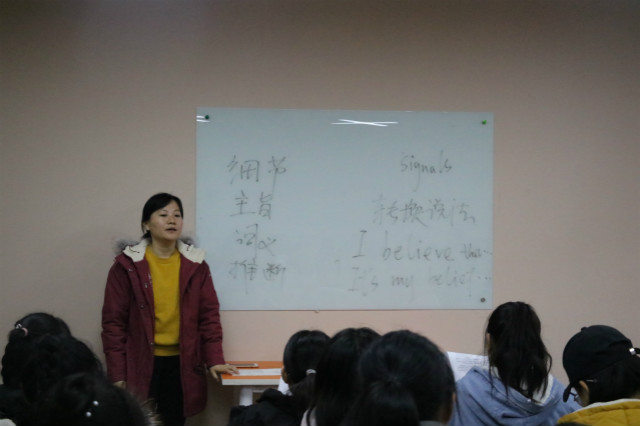 细节
主旨
词义
推断
signals
转换说法
I believe tha..
It's my belief...